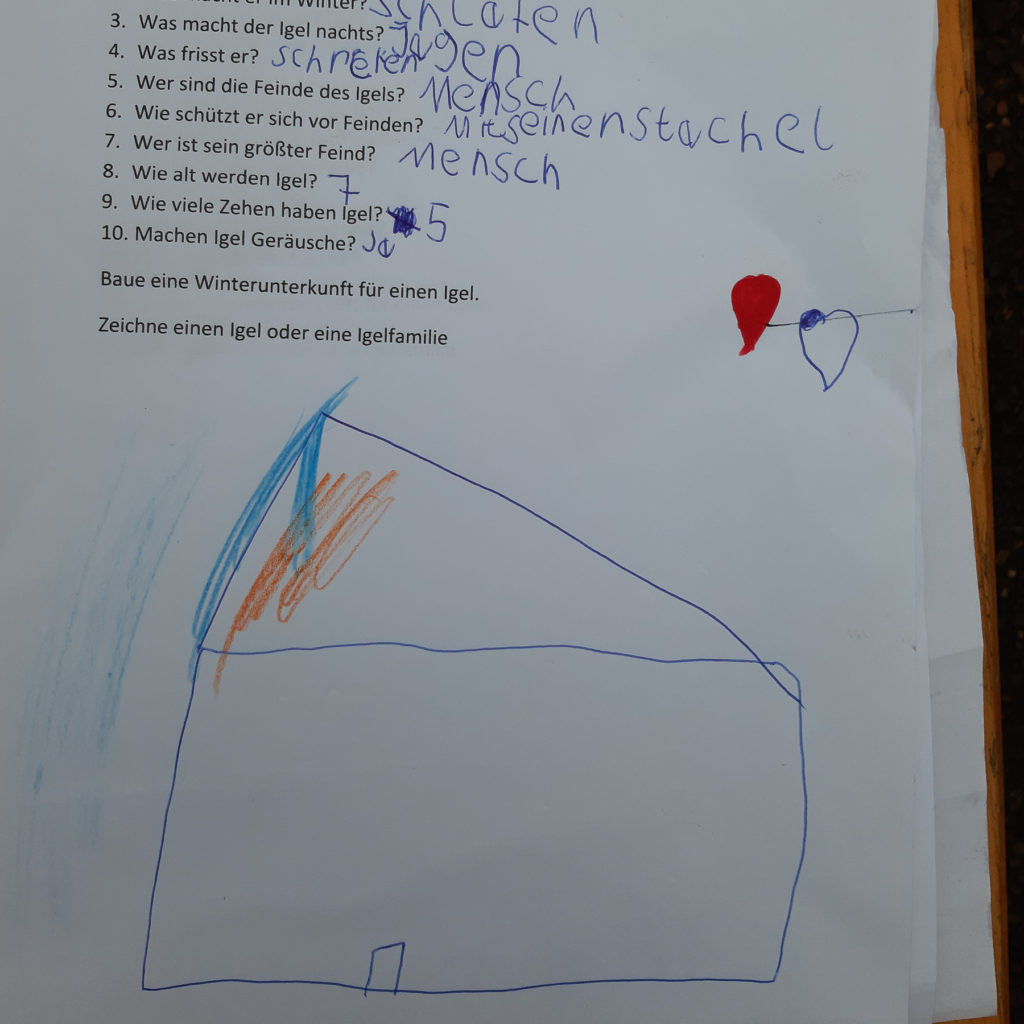 im Winter? Schlafen
3. Was macht der Igel nachts? Jagen
4. Was frisst er? Schneken
5. Wer sind die Feinde des Igels? Mensch
6. Wie schützt er sich vor Feinden? Mit seinen stachel
7. Wer ist sein größter Feind? Mensch
8. Wie alt werden Igel? 7
9. Wie viele Zehen haben Igel? 5
10. Machen Igel Geräusche? Ja
Baue eine Winterunterkunft für einen Igel.
Zeichne einen Igel oder eine Igelfamilie